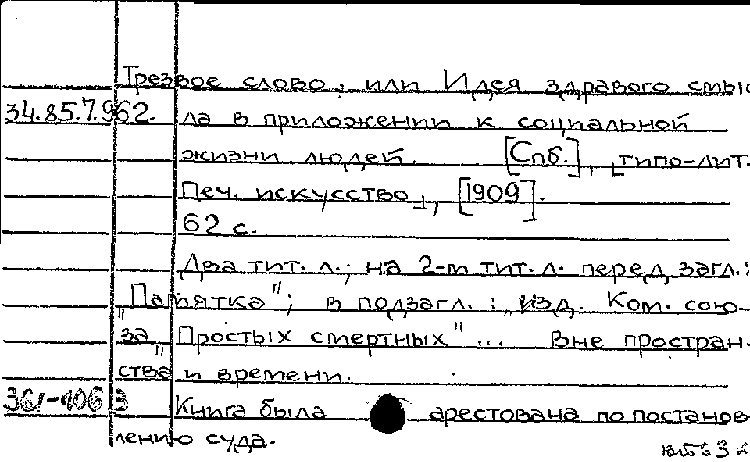 Трезвое слово, или Идея здравого смыс
34.85.7.962. ла в приложении к социальной
жизни людей. [Спб.], "типо-лит.
Печ. искусство", [1909].
62 с.
Два тит. л.; на 2-м тит. л. перед загл.:
"Памятка"; в подзагл.: изд. Ком. сою-
за "Простых смертных"... Вне простран-
ства и времени.
Книга была арестована по постанов
лению суда.